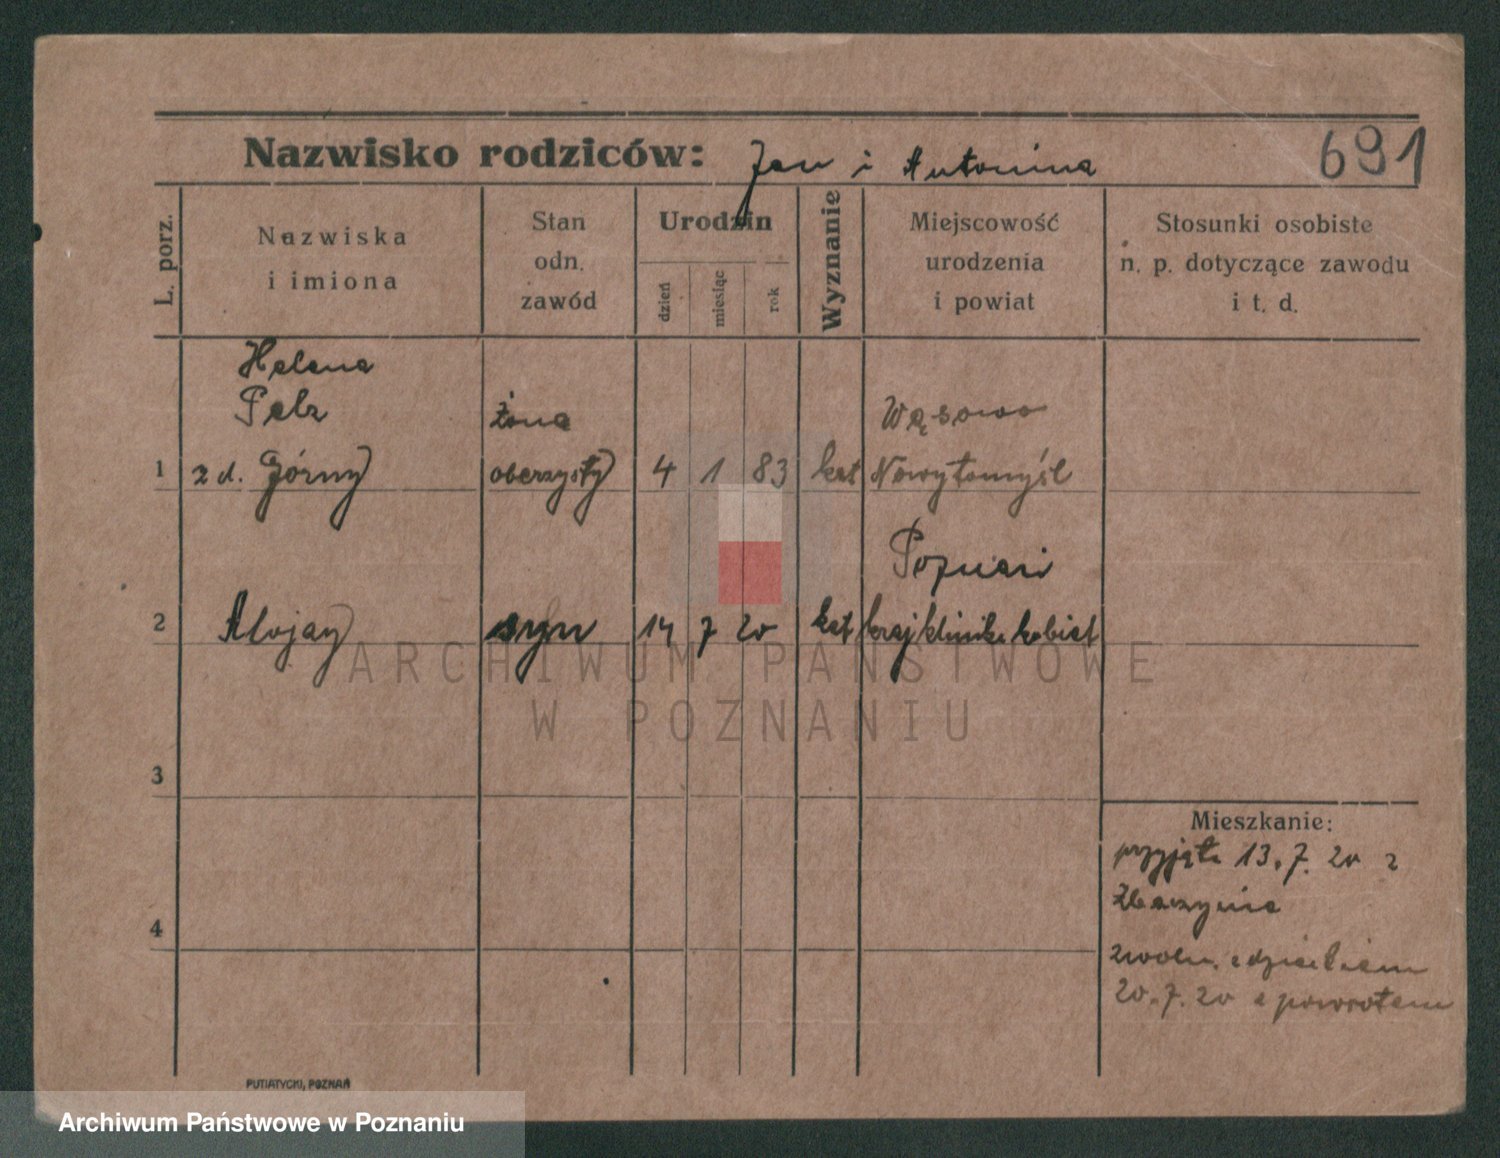 Nazwisko rodziców: Jan i Antonina 691
L. porz.
Nazwiska
i imiona
Stan
odn.
zawód
Urodzin
dzień
miesiąc
rok
Wyznanie
Miejscowość
urodzenia
i powiat
Stosunki osobiste
n. p. dotyczące zawodu
i t. d.
Helena
Pelz żona Wąsowo
1 z d. Górny oberzysty 4 1 83 kat Nowytomyśl
Poznań
2 Alojzy syn 14 7 20 kat kraj klinika kobiet
3
Mieszkanie:
przyjęta 13.7.20 z
Zbaszynia
4
zwoln. z dzieckiem
20.7.20 z powrotem
PUTIATYCKI, POZNAŃ
ARCHIWUM PAŃSTWOWE
W POZNANIU
Archiwum Państwowe w Poznaniu